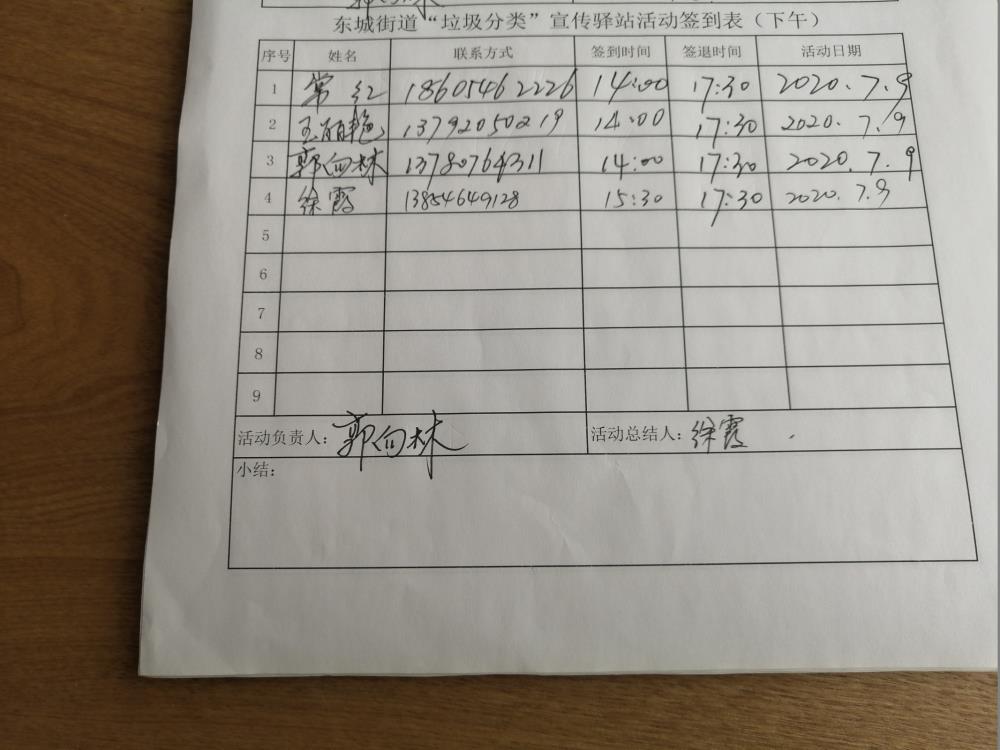 东城街道“垃圾分类”宣传驿站活动签到表（下午）
序号 姓名 联系方式 签到时间 签退时间 活动日期
1 常红 18605462226 14:00 17:30 2020.7.9
2 王丽艳 13792050219 14:00 17:30 2020.7.9
3 郭向林 13780764311 14:00 17:30 2020.7.9
4 徐霞 13854649128 15:30 17:30 2020.7.9
5
6
7
8
9
活动负责人：郭向林 活动总结人：徐霞
小结：